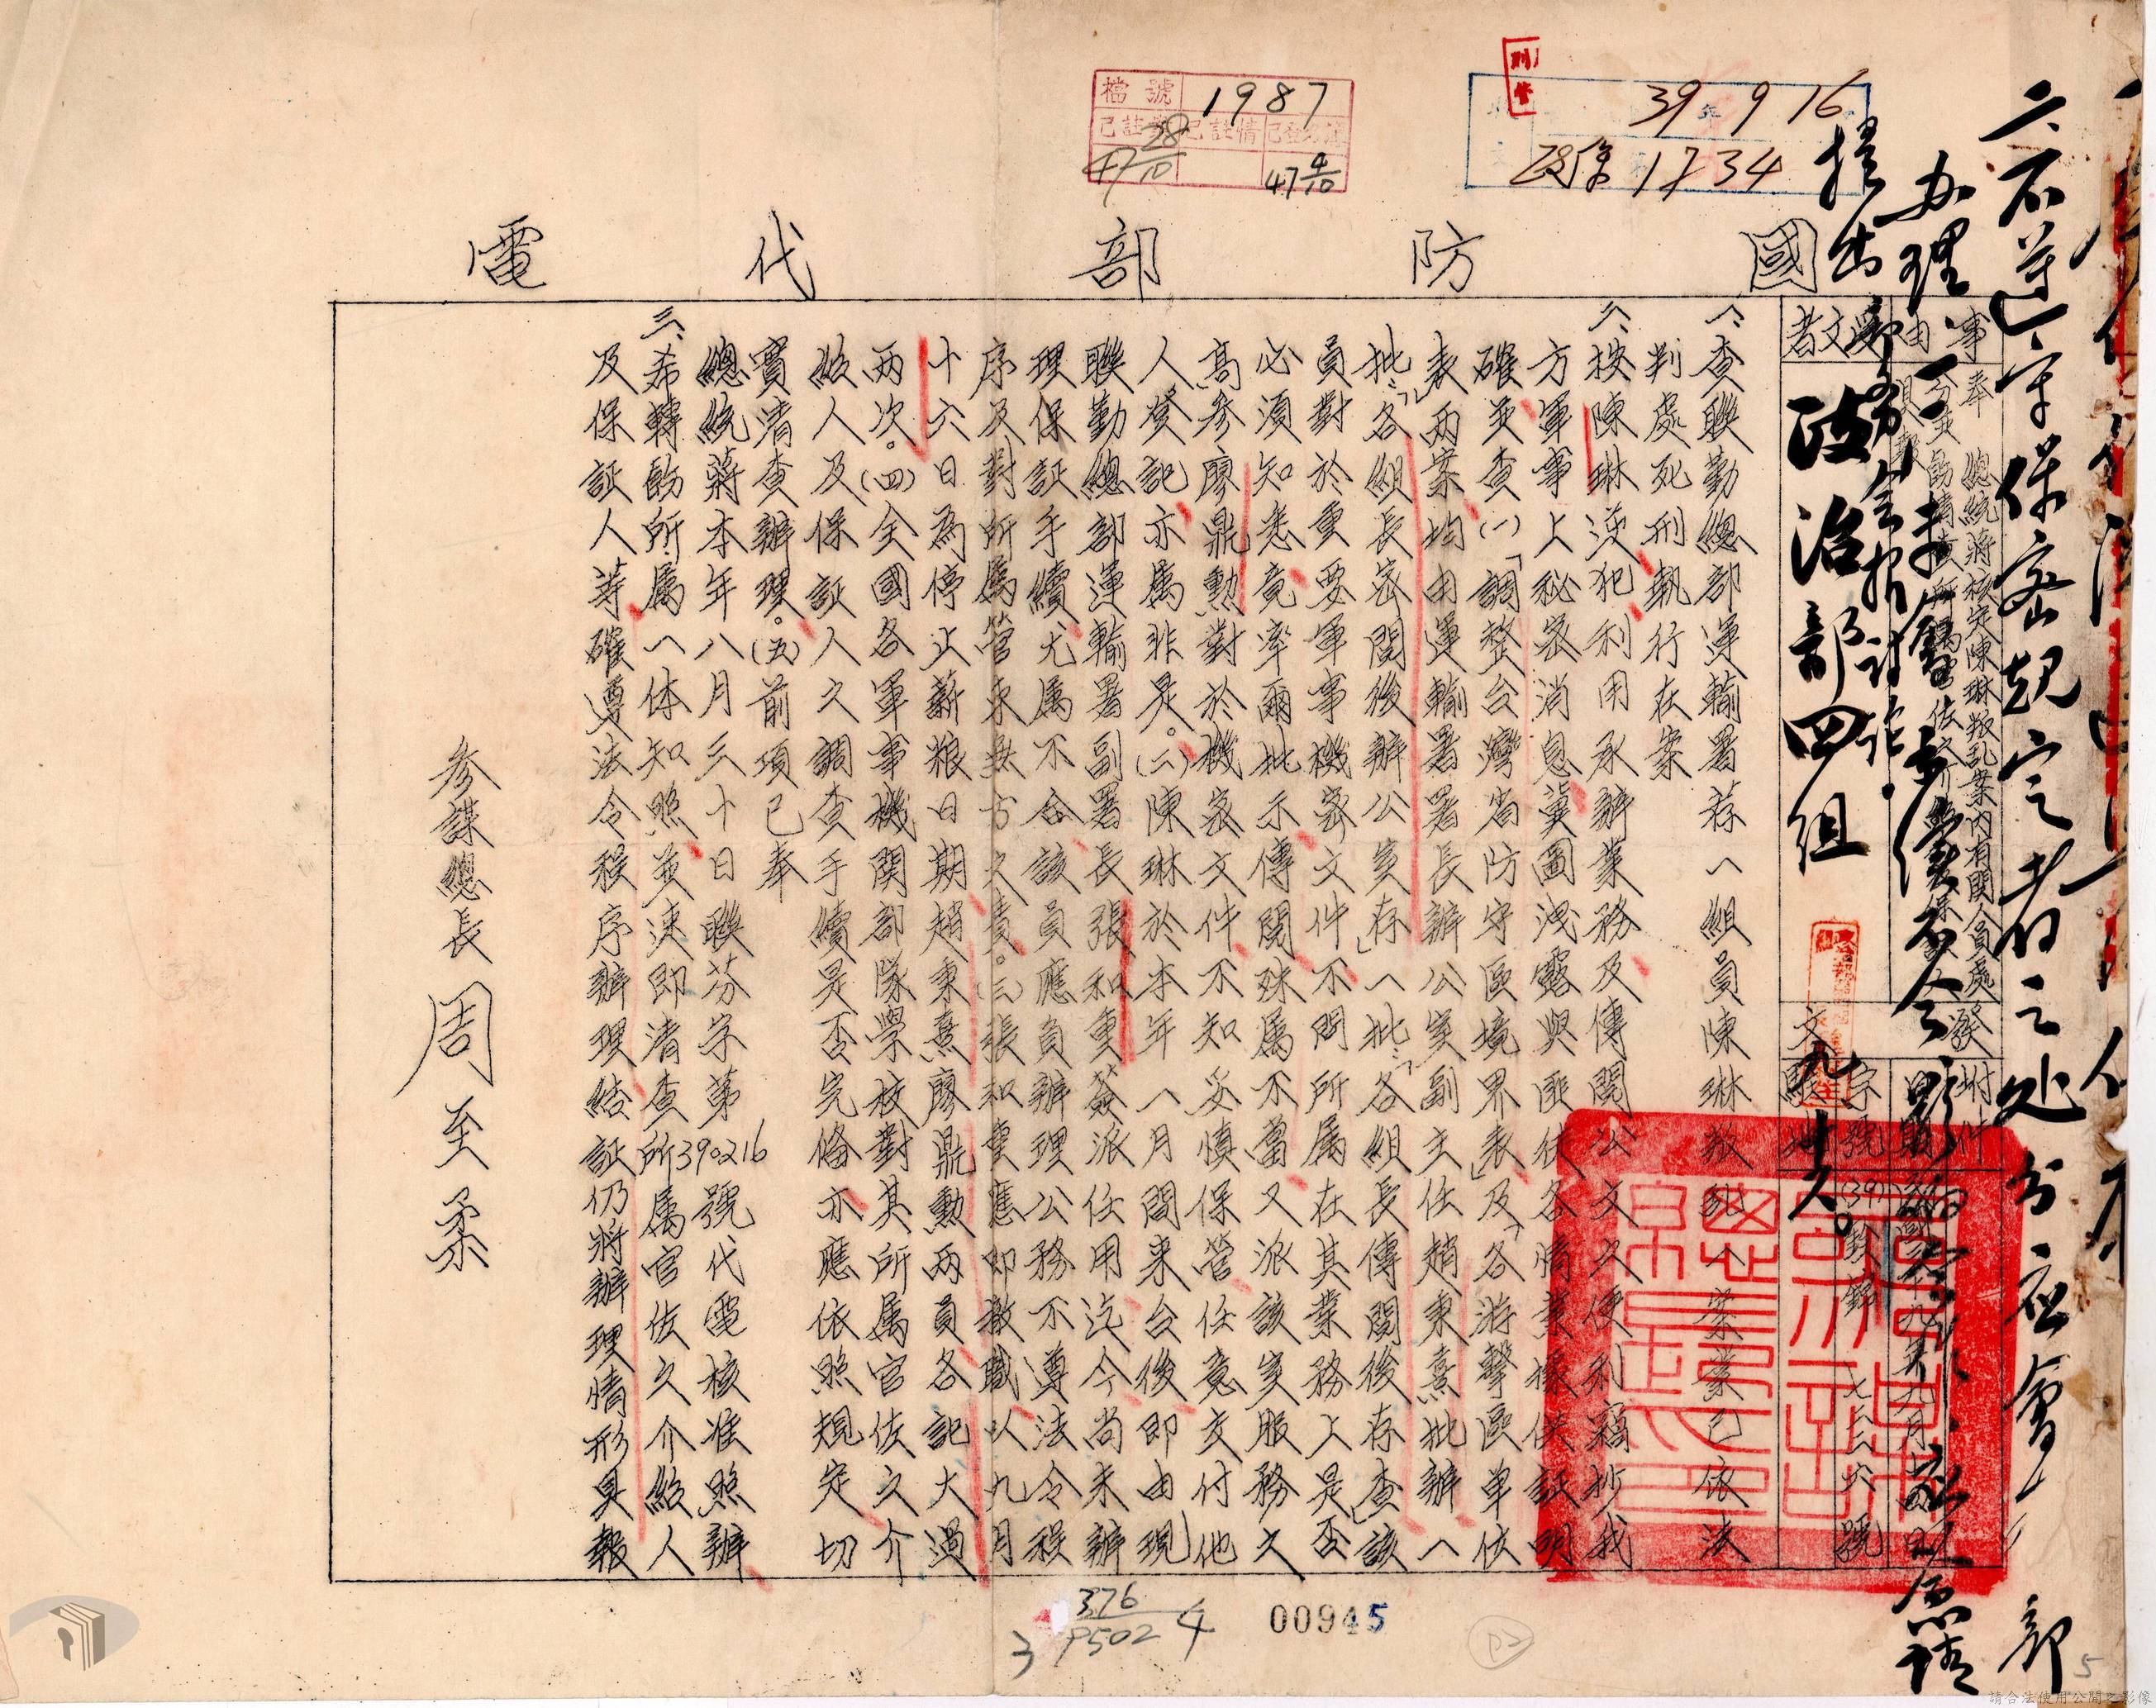 檔號 1987
已註銷 已註情 已登名簿
47 28/10
47 4/10
39年9月16
1734
國防部代電
事由
奉總統蔣核定陳琳叛乱案內有關人員處
受文者
政治部四組
附件
發文
日期
字號
駐地
九、十六。
二、不遵守保密規定者之处分应會
办理
提出
一、查聯勤總部運輸署荐一組員陳琳叛乱一案業已依法
判處死刑執行在案
二、按陳琳逆犯利用承辦業務及傳閱公文之便利竊抄我
方軍事上秘密消息冀圖洩露與匪徒各情業據供証明
確並查(一)「調整台灣省防守區境界表」及「各游擊區單位
表」兩案均由運輸署署長辦公室副主任趙秉熹批辦一
批：「各組長密閱後辦公室存」一批：「各組長傳閱後存」查該
員對於重要軍事機密文件不問所屬在其業務上是否
必須知悉竟率爾批示傳閱殊屬不當又派該室服務之
高參廖鼎勳對於機密文件不知妥慎保管任意交付他
人登記亦屬非是。(二)陳琳於本年一月間來台後即由現
聯勤總部運輸署副署長張和重簽派任用迄今尚未辦
理保証手續尤屬不合該員應負辦理公務不遵法令程
序及對所屬管束無方之責。(三)張和重應即撤職以九月
十六日為停止薪粮日期趙秉熹廖鼎勳兩員各記大過
兩次。(四)全國各軍事機関部隊學校對其所属官佐之介
紹人及保証人之調查手續是否完俻亦應依照規定切
實清查辦理。(五)前項已奉
總統蔣本年八月三十日聯芬字第390216號代電核准照辦
三、希轉飭所属一体知照並迅即清查所属官佐之介紹人
及保証人等確遵法令程序辦理結証仍將辦理情形具報
參謀總長周至柔
376/P502
4
3
00945
P2
5
請合法使用公開之影像